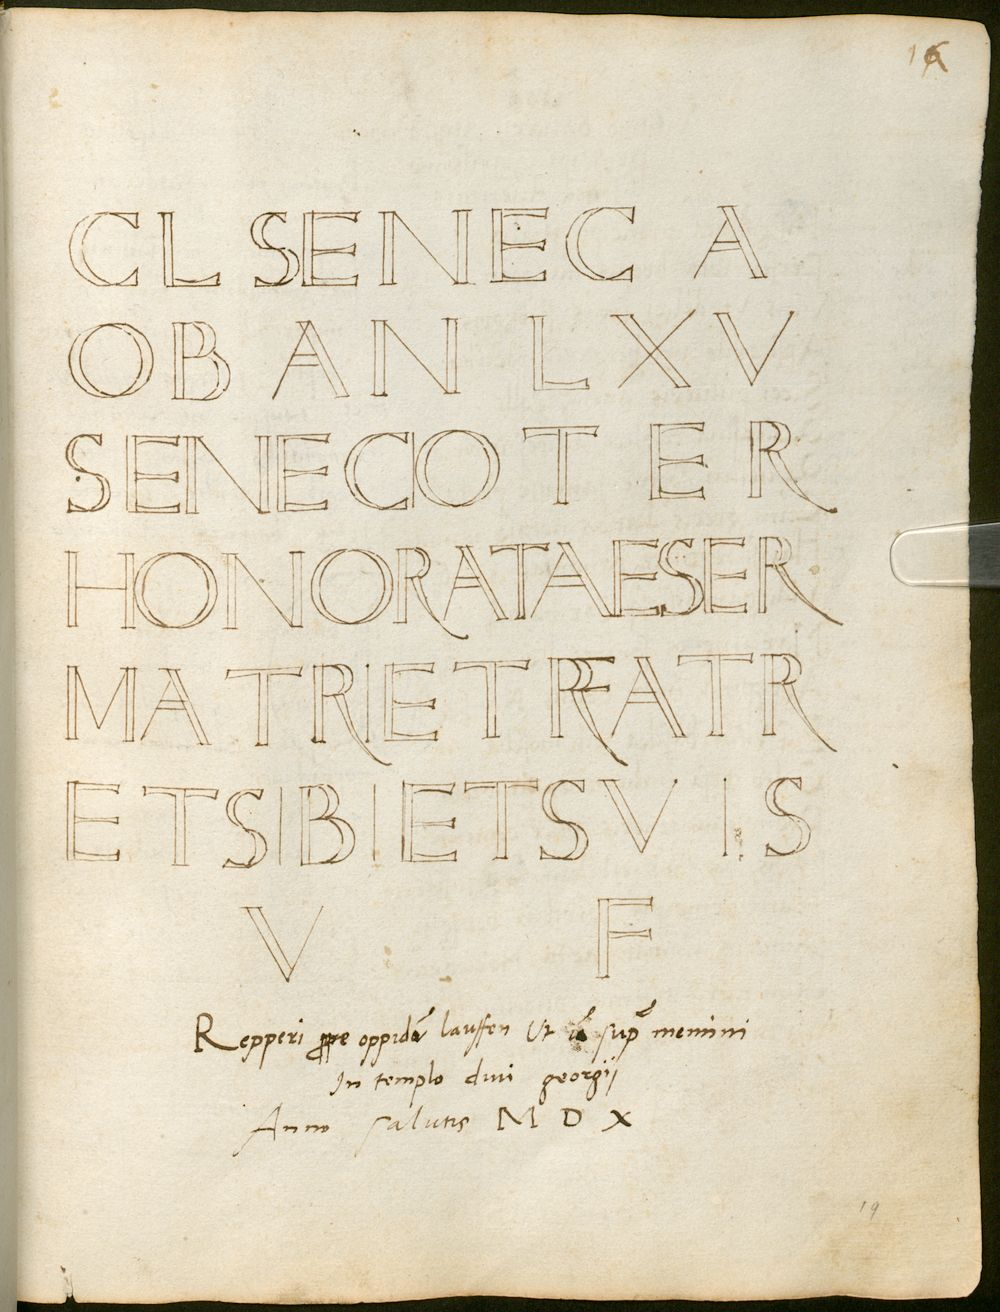 16
CL SENEC A
OB AN LXV
SENECIO T E R
HONORATAE SER
MATRI ET FRATR
ET SIBI ET SVIS
V F
Repperi prope oppidū lauffen Ut iā supᵃ memini
In templo divi georgij
Anno salutis M D X
19